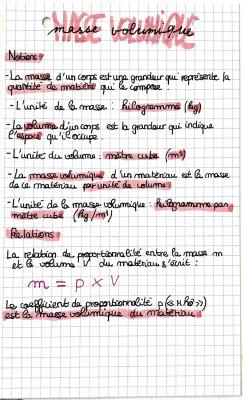 MASSE VOLUMIQUE
masse volumique
Notions :
-La masse d'un corps est une grandeur qui représente la
quantité de matière qui le compose.
-L'unité de la masse : kilogramme (kg)
-Le volume d'un corps est la grandeur qui indique
l'espace qu'il occupe.
-L'unité du volume : mètre cube (m³)
-La masse volumique d'un matériau est la masse
de ce matériau par unité de volume.
-L'unité de la masse volumique : kilogramme par
mètre cube (kg/m³)
Relations :
La relation de proportionnalité entre la masse m
et le volume V du matériau s'écrit :
m = ρ × V
Le coefficient de proportionnalité ρ (« rhô »)
est la masse volumique du matériau.